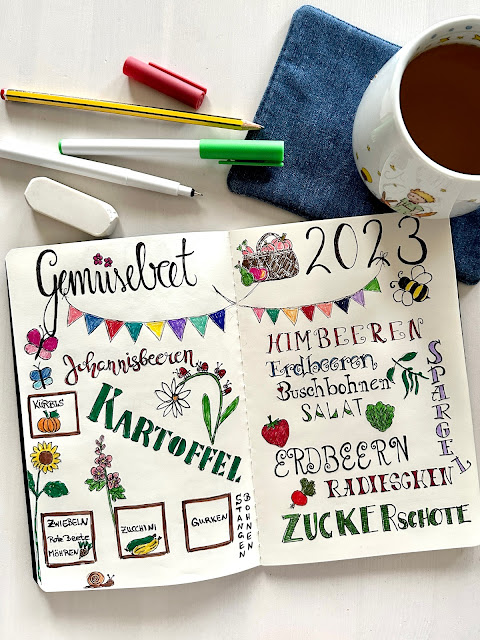 Gemüsebeet
Johannisbeeren
KARTOFFEL
KÜRBIS
ZWIEBELN
Rote Beete
MÖHREN
ZUCCHINI
GURKEN
STANGEN
BOHNEN
2023
HIMBEEREN
Erdbeeren
Buschbohnen
SALAT
SPARGEL
ERDBEERN
RADIESCHEN
ZUCKERSCHOTE